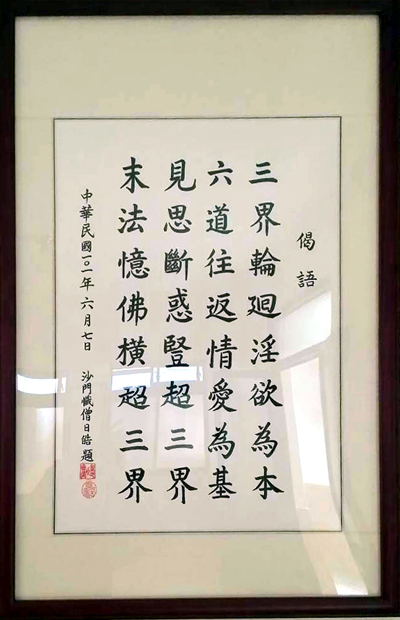 偈語
三界輪迴淫欲為本
六道往返情愛為基
見思斷惑豎超三界
末法憶佛橫超三界
中華民國一〇一年六月七日 沙門懺僧日皓題